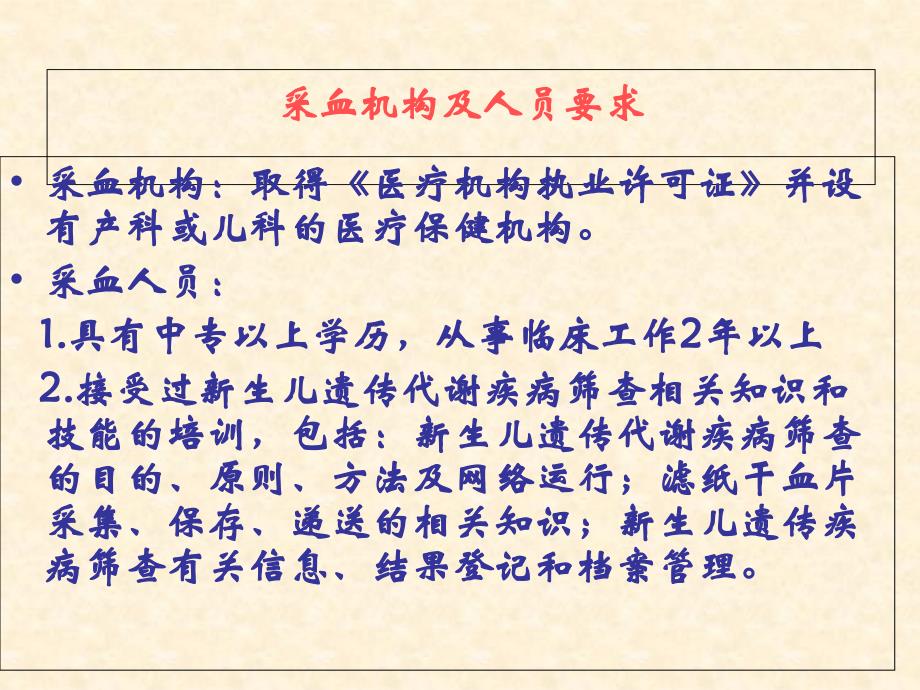 采血机构及人员要求
• 采血机构：取得《医疗机构执业许可证》并设
有产科或儿科的医疗保健机构。
• 采血人员：
1.具有中专以上学历，从事临床工作2年以上
2.接受过新生儿遗传代谢疾病筛查相关知识和
技能的培训，包括：新生儿遗传代谢疾病筛查
的目的、原则、方法及网络运行；滤纸干血片
采集、保存、递送的相关知识；新生儿遗传疾
病筛查有关信息、结果登记和档案管理。